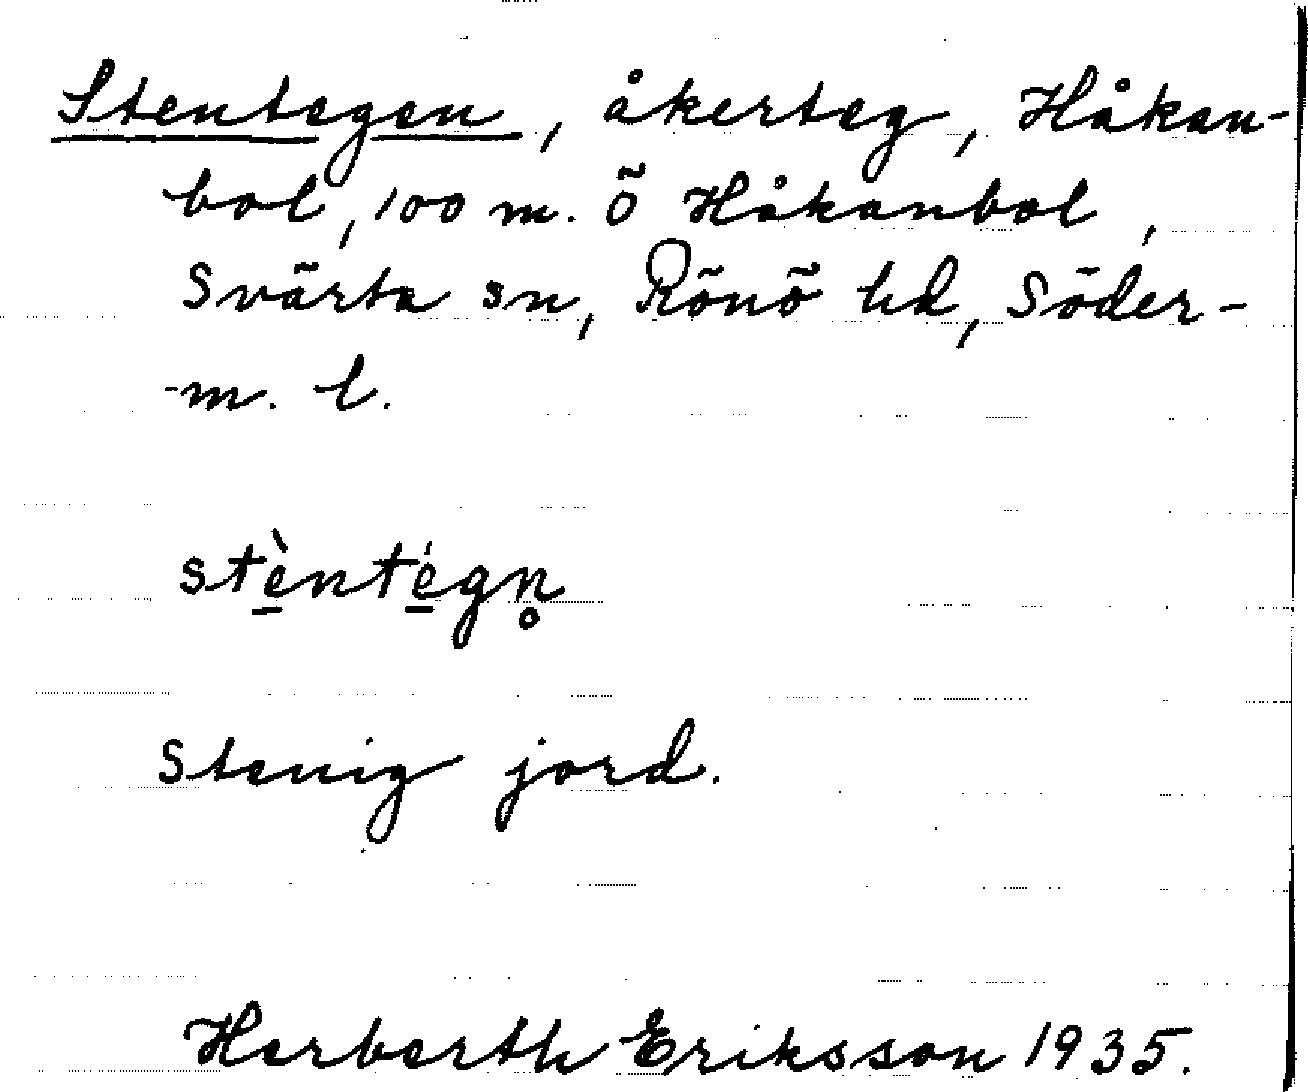 Stentegen, åkerteg, Håkan-
bol, 100 m. Ö Håkanbol,
Svärta sn, Rönö hd, Söder-
-m. l.
stè̱nté̱gn̥
Stenig jord.
Herberth Eriksson 1935.